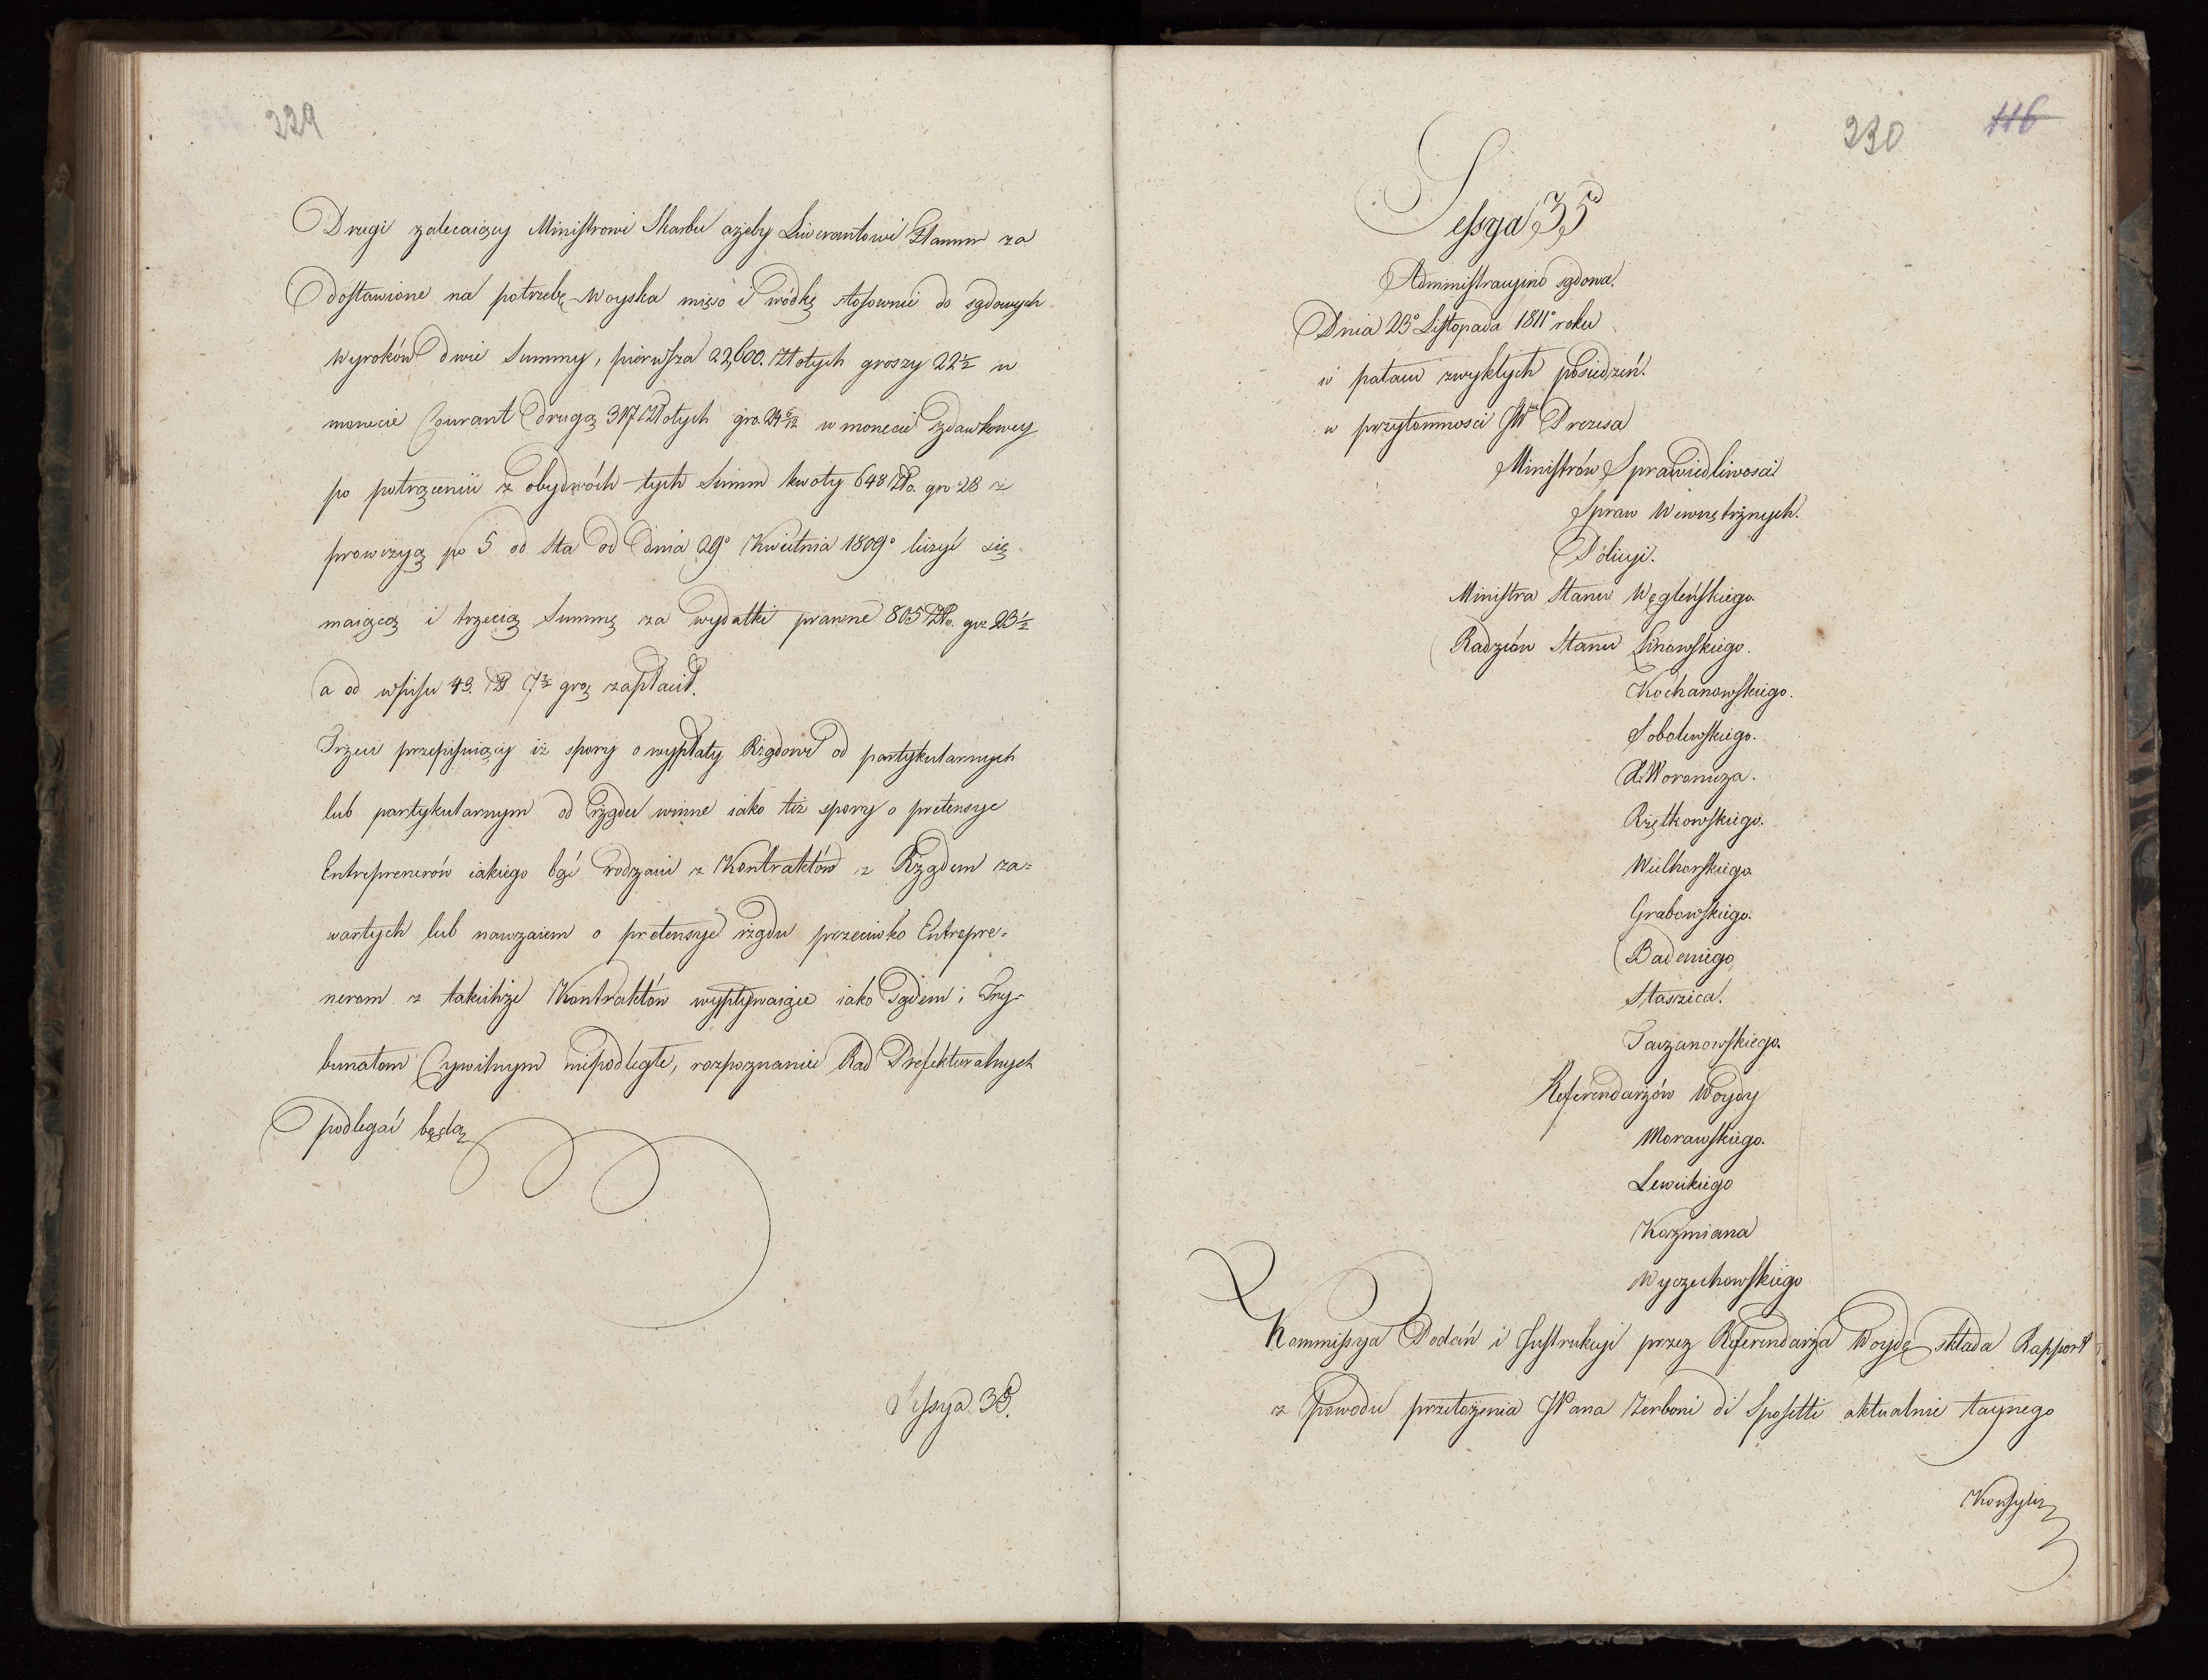 229
Drugi zalecaiący Ministrowi Skarbu ażeby Liwerantowi Flamm za
dostawione na potrzebę Woyska mięso i wódkę stosownie do sądowych
wyroków dwie Summy, pierwsza 22,600. Złotych groszy 22½ w
monecie Courant drugą 317 Złotych gro. 24 6/12 w monecie zdawkowey
po potrąceniu z obydwóch tych Summ kwoty 648 Zło. gro 28 z
prowizyą po 5 od sta od dnia 29° Kwietnia 1809° liczyć się
maiącą i trzecią Summę za wydatki prawne 805 Zło. gro 23½
a od wpisu 43. Zł 7½ gro zapłacił.
Trzeci przepisuiący iż spory o wypłaty Rządowi od partykularnych
lub partykularnym od rządu winne iako też spory o pretensye
Entreprenerów iakiego bąć rodzaiu z Kontraktów z Rządem za=
wartych lub nawzaiem o pretensye rządu przeciwko Entrepre=
nerom z takichże Kontraktów wypływaiące iako Sądem i Try=
bunałom Cywilnym niepodległe, rozpoznaniu Rad Prefekturalnych
podlegać będą
Sessya 35.
230 116
Sessya 35
Administracyino sądowa.
Dnia 23° Listopada 1811° roku
w pałacu zwykłych posiedzeń.
w przytomności JW Prezesa
Ministrów Sprawiedliwości
Spraw Wewnętrznych.
Policyi.
Ministra Stanu Węgleńskiego.
Radzców Stanu Linowskiego.
Kochanowskiego.
Sobolewskiego.
X. Woronicza.
Rzętkowskiego.
Wielhorskiego
Grabowskiego.
Badeniego
Staszica.
Tarzanowskiego.
Referendarzów Woydy
Morawskiego.
Lewickiego
Kozmiana
Wyczechowskiego
Kommissya Podań i Instrukcyi przez Referendarza Woydę składa Rapport
z powodu przełożenia JPana Zerboni di Sposetti aktualnie taynego
Konsylia